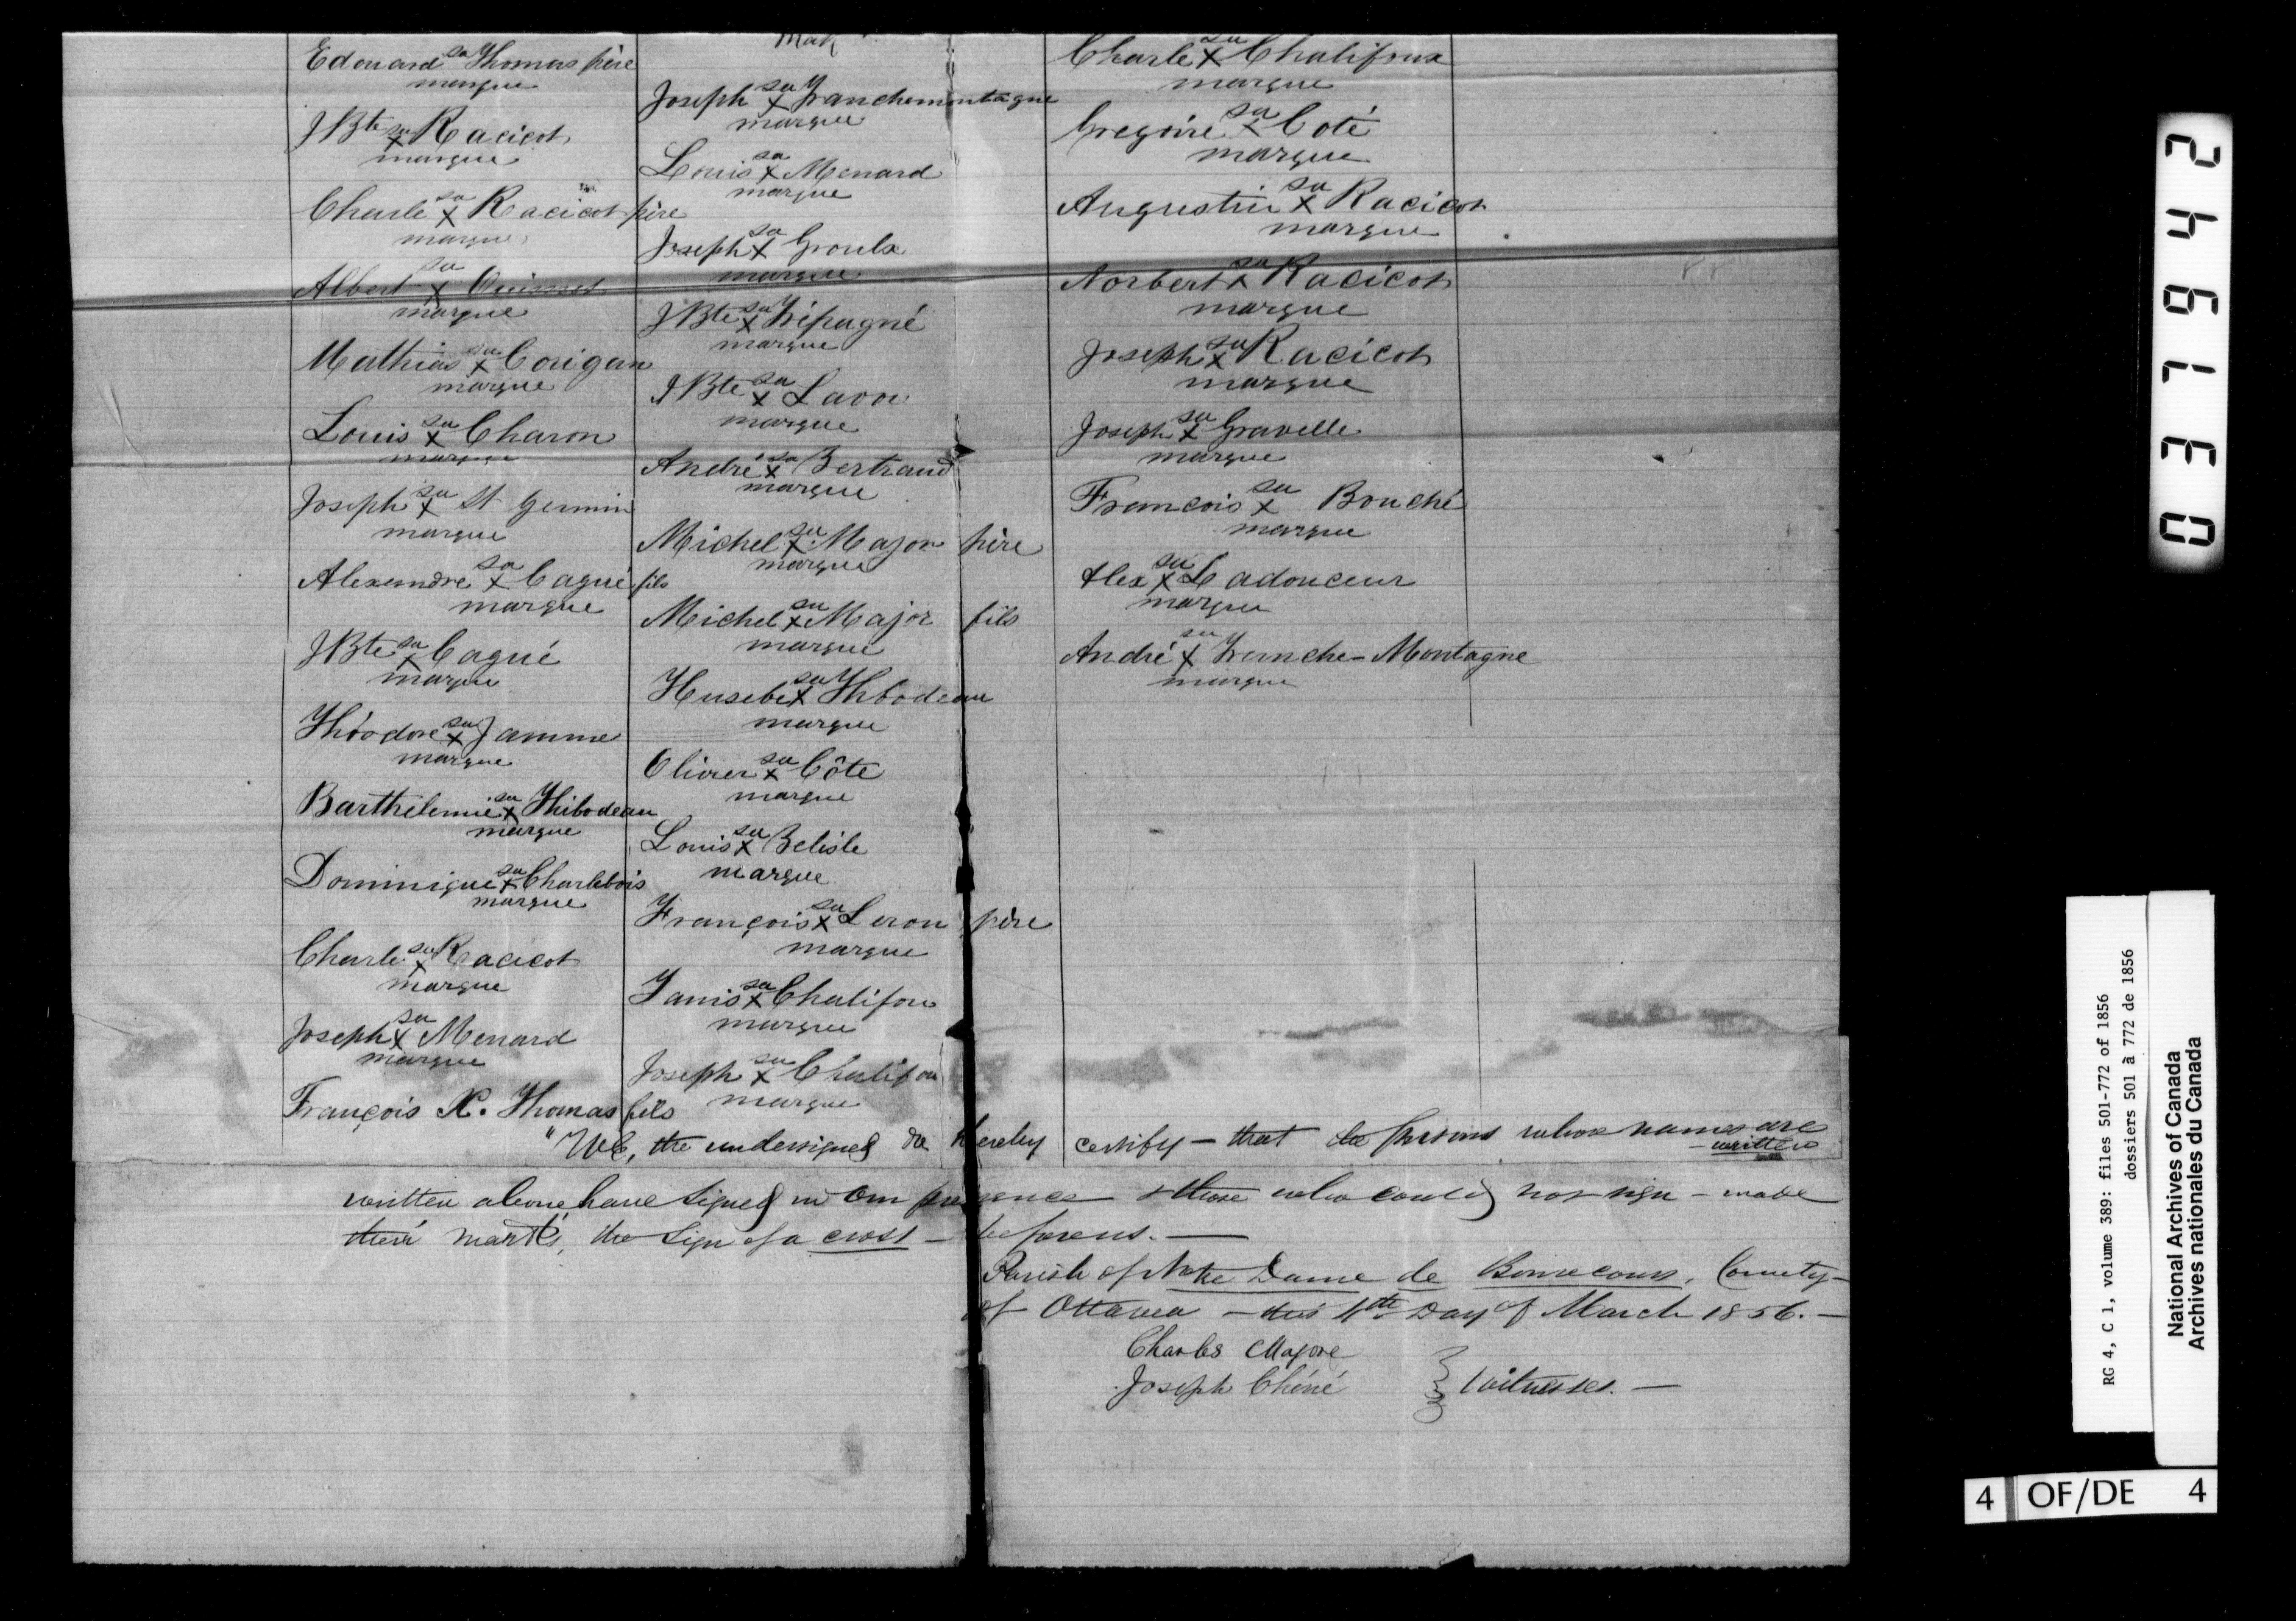 Edouard sa Thomas père
marque
JBte sa x Racicot
marque
Charle sa x Racicot père
marque
Albert sa x Ouimet
marque
Mathias sa x Corigan
marque
Louis sa x Charon
marque
Joseph sa x St Germin
marque
Alexandre sa x Cagné fils
marque
JBte sa x Cagné
marque
Théodore sa x Jamme
marque
Barthelemie sa x Thibodeau
marque
Dominique sa x Charlebois
marque
Charle sa x Racicot
marque
Joseph sa x Menard
marque
François X. Thomas fils
mark
Joseph sa x Franchemontagne
marque
Louis sa x Menard
marque
Joseph sa x Groulx
marque
JBte sa x Trépagné
marque
JBte sa x Lavoi
marque
André sa x Bertrand
marque
Michel sa x Major père
marque
Michel sa x Major fils
marque
Husebe sa x Thbodeau
marque
Olivier sa x Côte
marque
Louis sa x Belisle
marque
François sa x Leron père
marque
Janis sa x Chalifou
marque
Joseph sa x Chalifou
marque
Charle sa x Chalifoux
marque
Gregoire sa x Coté
marque
Augustin sa x Racicot
marque
Norbert sa x Racicot
marque
Joseph sa x Racicot
marque
Joseph sa x Gravelle
marque
François sa x Bouché
marque
Alex sa x Ladouceur
marque
André sa x Franche-Montagne
marque
"We, the undersigned do hereby certify - that the persons whose names are
written
written above have signed in our presence & those who could not sign - made
their marks, the sign of a cross - before us. —
Parish of Notre Dame de Bonsecours, County -
of Ottawa - this 4th Day of March 1856. -
Charles Major
Joseph Chéné } witnesses. —
037942
RG 4, C 1, volume 389: files 501-772 of 1856
dossiers 501 à 772 de 1856
National Archives of Canada
Archives nationales du Canada
4 OF/DE 4